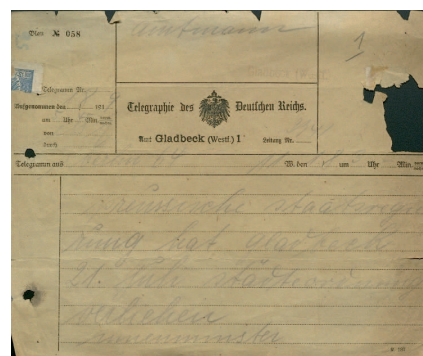 Plien № 058
Amtmann
1
Telegramm Nr.
Aufgenommen den 191
um Uhr Min.
von
durch
Telegraphie des Deutschen Reichs.
Amt Gladbeck (Westf.) 1 Leitung Nr.
Telegramm aus W. den um Uhr Min.
preussische staatsregie
rung hat gladbeck
21. Juli städteordnung
verliehen
innenminister